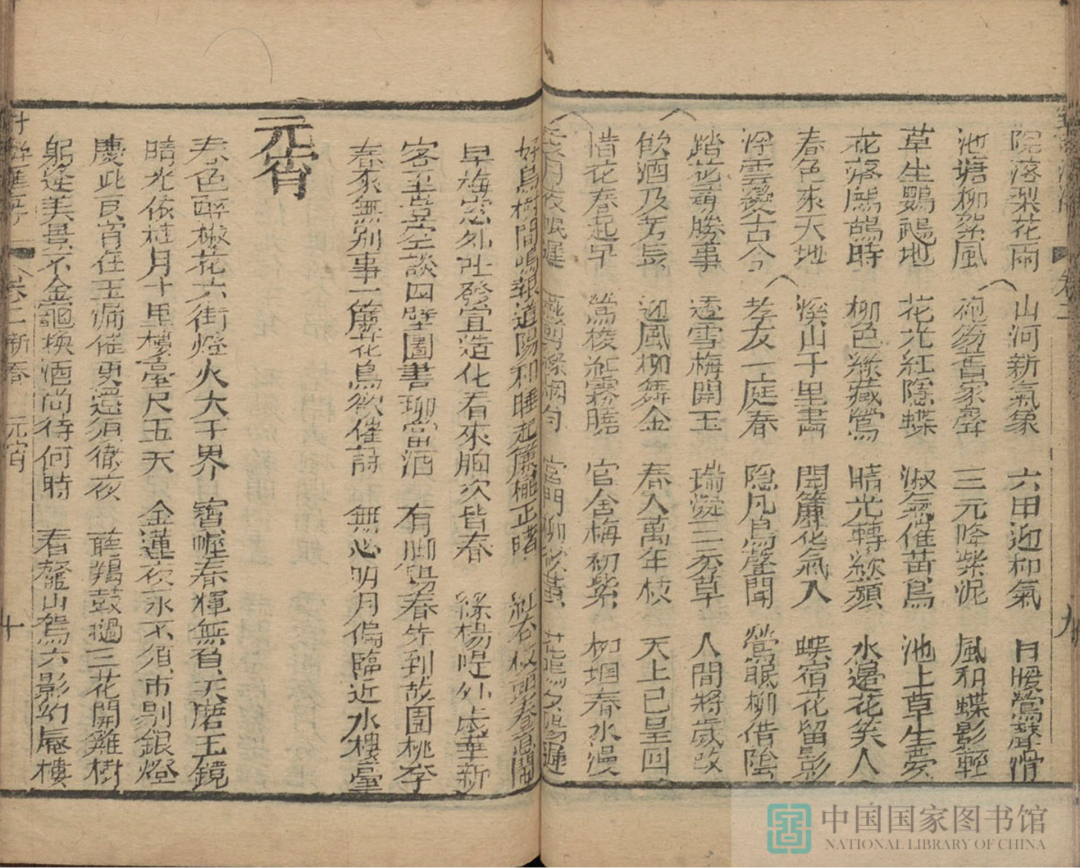 院落梨花雨 山河新氣象 六甲迎柳氣 日暖鶯聲滑
池塘柳絮風 舊家聲 三元降紫泥 風和蝶影輕
草生鸚鵡地 花光紅隱蝶 淑氣催黃鳥 池上草生夢
花落鷓鴣時 柳色綠藏鶯 晴光轉綠蘋 水邊花笑人
春色來天地 溪山千里畵 開簾花氣入 映宿花留影
浮雲變古今 孝友一庭春 隱几鳥聲聞 鶯眠柳借陰
踏花尋勝事 透雪梅開玉 瑞凝三秀草 人間將歲改
飲酒及芳辰 迎風柳舞金 春入萬年枝 天上已星回
惜花春起早 鶯梭紅霧 官舍梅初紫 柳堌春水漫
月夜眠遲 宮門柳欲黃 花塢夕陽遲
好鳥樹間鳴報道陽和睡起簾櫳正曙
早梅窓外吐發宣造化看來胸次皆春 綠楊堤外歲華新
客至莫空談四壁圖書聊當酒 有脚陽春先到故園桃李
春來無別事一簾花鳥欲催詩 無心明月偏臨近水樓臺
元宵
春色醉椒花六街燈火大千界 寶幄春輝無負天磨玉鏡
晴光依桂月十里樓臺尺五天 金蓮夜永不須市剔銀燈
慶此良宵任玉漏催更還須徹夜 聽羯鼓撾三花開雞樹
躬逢美景不金龜換酒尚待何時 看鰲山駕六影幻蜃樓
卷二新春 元宵 十
卷二 九
中国国家图书馆
NATIONAL LIBRARY OF CHINA